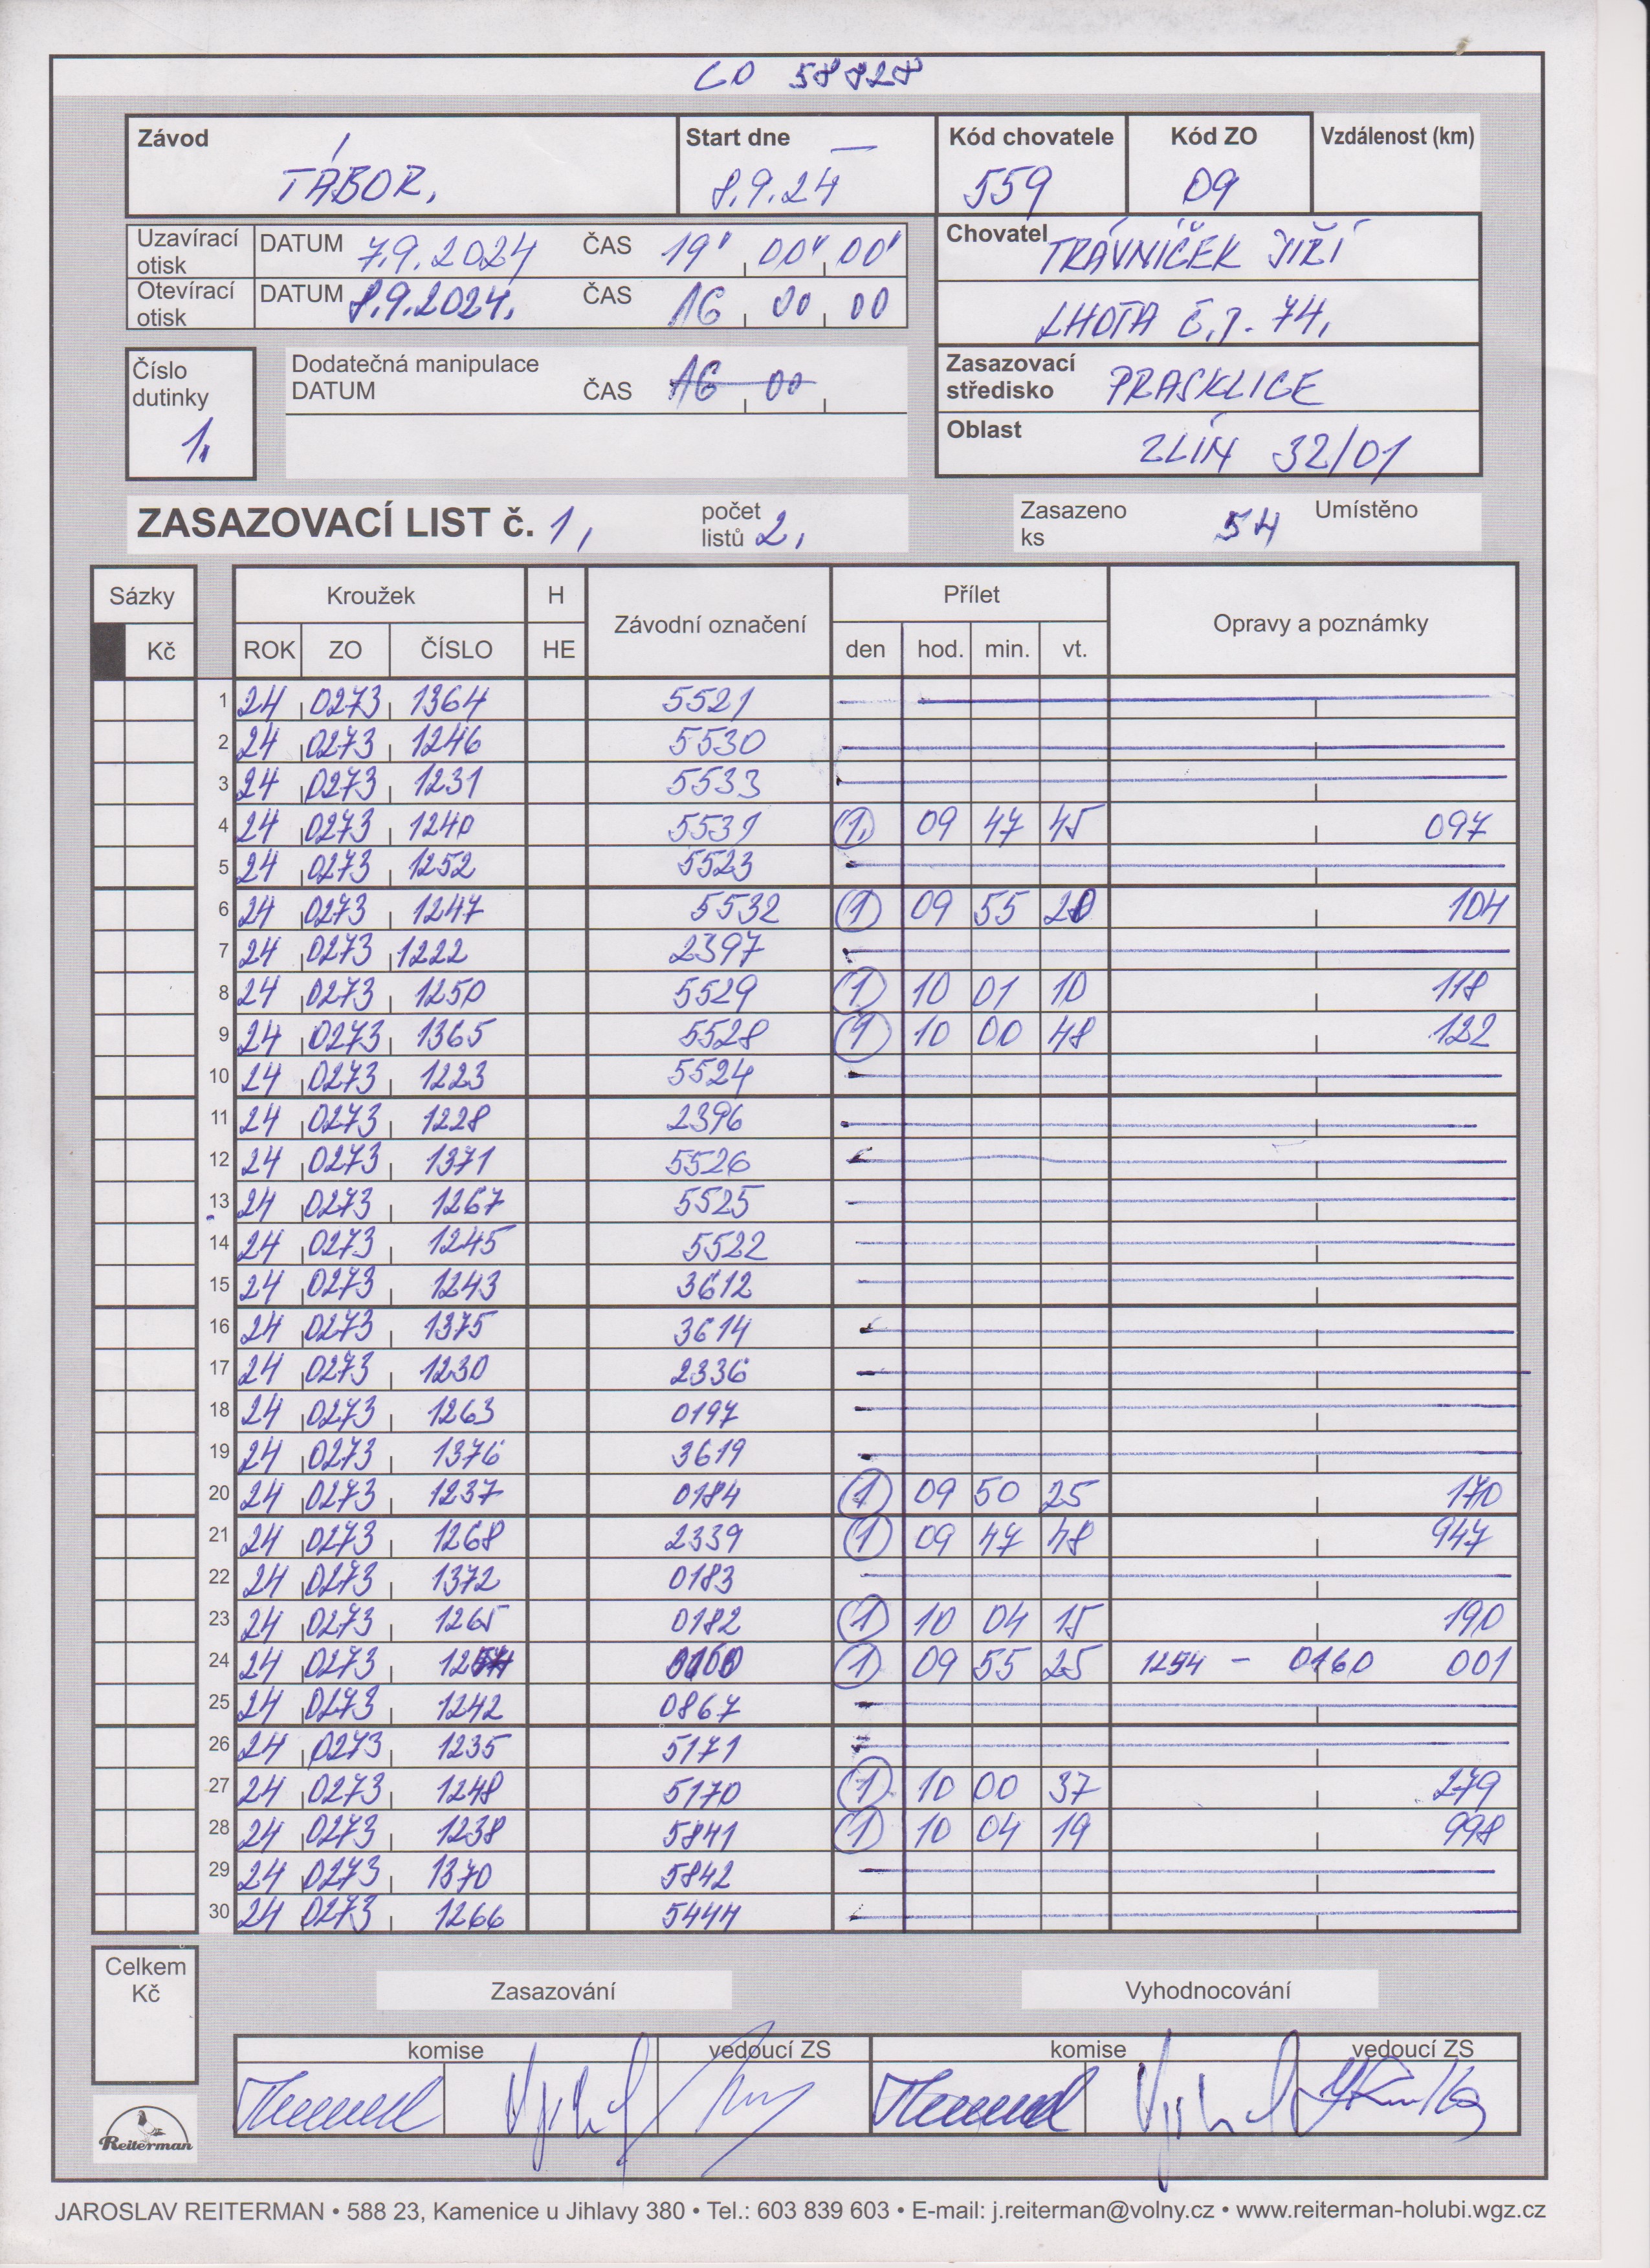 CD 58828
Závod Start dne Kód chovatele Kód ZO Vzdálenost (km)
TÁBOR, 8.9.24 559 09
Uzavírací otisk DATUM 7.9.2024 ČAS 19' 00' 00'
Otevírací otisk DATUM 8.9.2024. ČAS 16 00 00
Chovatel TRÁVNÍČEK JIŘÍ
LHOTA č.p. 74,
Číslo dutinky 1.
Dodatečná manipulace
DATUM ČAS 16 00
Zasazovací středisko PRASKLICE
Oblast ZLÍN 32/01
ZASAZOVACÍ LIST č. 1, počet listů 2, Zasazeno ks 54 Umístěno
Sázky Kroužek H Závodní označení Přílet Opravy a poznámky
Kč ROK ZO ČÍSLO HE den hod. min. vt.
1 24 0273 1364 5521
2 24 0273 1246 5530
3 24 0273 1231 5533
4 24 0273 1240 5531 1. 09 47 45 097
5 24 0273 1252 5523
6 24 0273 1247 5532 1 09 55 20 104
7 24 0273 1222 2397
8 24 0273 1250 5529 1 10 01 10 118
9 24 0273 1365 5528 1 10 00 48 122
10 24 0273 1223 5524
11 24 0273 1228 2396
12 24 0273 1371 5526
13 24 0273 1267 5525
14 24 0273 1245 5522
15 24 0273 1243 3612
16 24 0273 1375 3614
17 24 0273 1230 2336
18 24 0273 1263 0197
19 24 0273 1376 3619
20 24 0273 1237 0184 1 09 50 25 170
21 24 0273 1268 2339 1 09 47 48 947
22 24 0273 1372 0183
23 24 0273 1265 0182 1 10 04 15 190
24 24 0273 1254 0160 1 09 55 25 1254 - 0160 001
25 24 0273 1242 0867
26 24 0273 1235 5171
27 24 0273 1248 5170 1 10 00 37 279
28 24 0273 1238 5841 1 10 04 19 998
29 24 0273 1370 5842
30 24 0273 1266 5444
Celkem Kč
Zasazování Vyhodnocování
komise vedoucí ZS komise vedoucí ZS
Reiterman
JAROSLAV REITERMAN • 588 23, Kamenice u Jihlavy 380 • Tel.: 603 839 603 • E-mail: j.reiterman@volny.cz • www.reiterman-holubi.wgz.cz